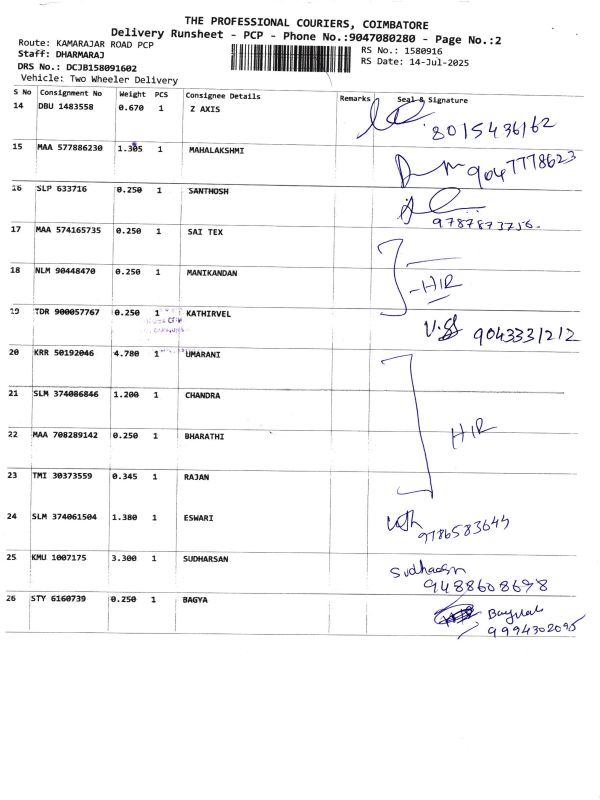 THE PROFESSIONAL COURIERS, COIMBATORE
Delivery Runsheet - PCP - Phone No.:9047080280 - Page No.:2
Route: KAMARAJAR ROAD PCP
Staff: DHARMARAJ
DRS No.: DCJB158091602
Vehicle: Two Wheeler Delivery
RS No.: 1580916
RS Date: 14-Jul-2025
S No Consignment No Weight PCS Consignee Details Remarks Seal & Signature
14 DBU 1483558 0.670 1 Z AXIS 8015436162
15 MAA 577886230 1.305 1 MAHALAKSHMI 9047778623
16 SLP 633716 0.250 1 SANTHOSH 9787873756.
17 MAA 574165735 0.250 1 SAI TEX
18 NLM 90448470 0.250 1 MANIKANDAN HIR
19 TDR 900057767 0.250 1 KATHIRVEL 9043331212
20 KRR 50192046 4.780 1 UMARANI
21 SLM 374086846 1.200 1 CHANDRA
22 MAA 708289142 0.250 1 BHARATHI HIR
23 TMI 30373559 0.345 1 RAJAN
24 SLM 374061504 1.380 1 ESWARI 9786583645
25 KMU 1007175 3.300 1 SUDHARSAN Sudharsan
9488608698
26 STY 6160739 0.250 1 BAGYA
9994302095